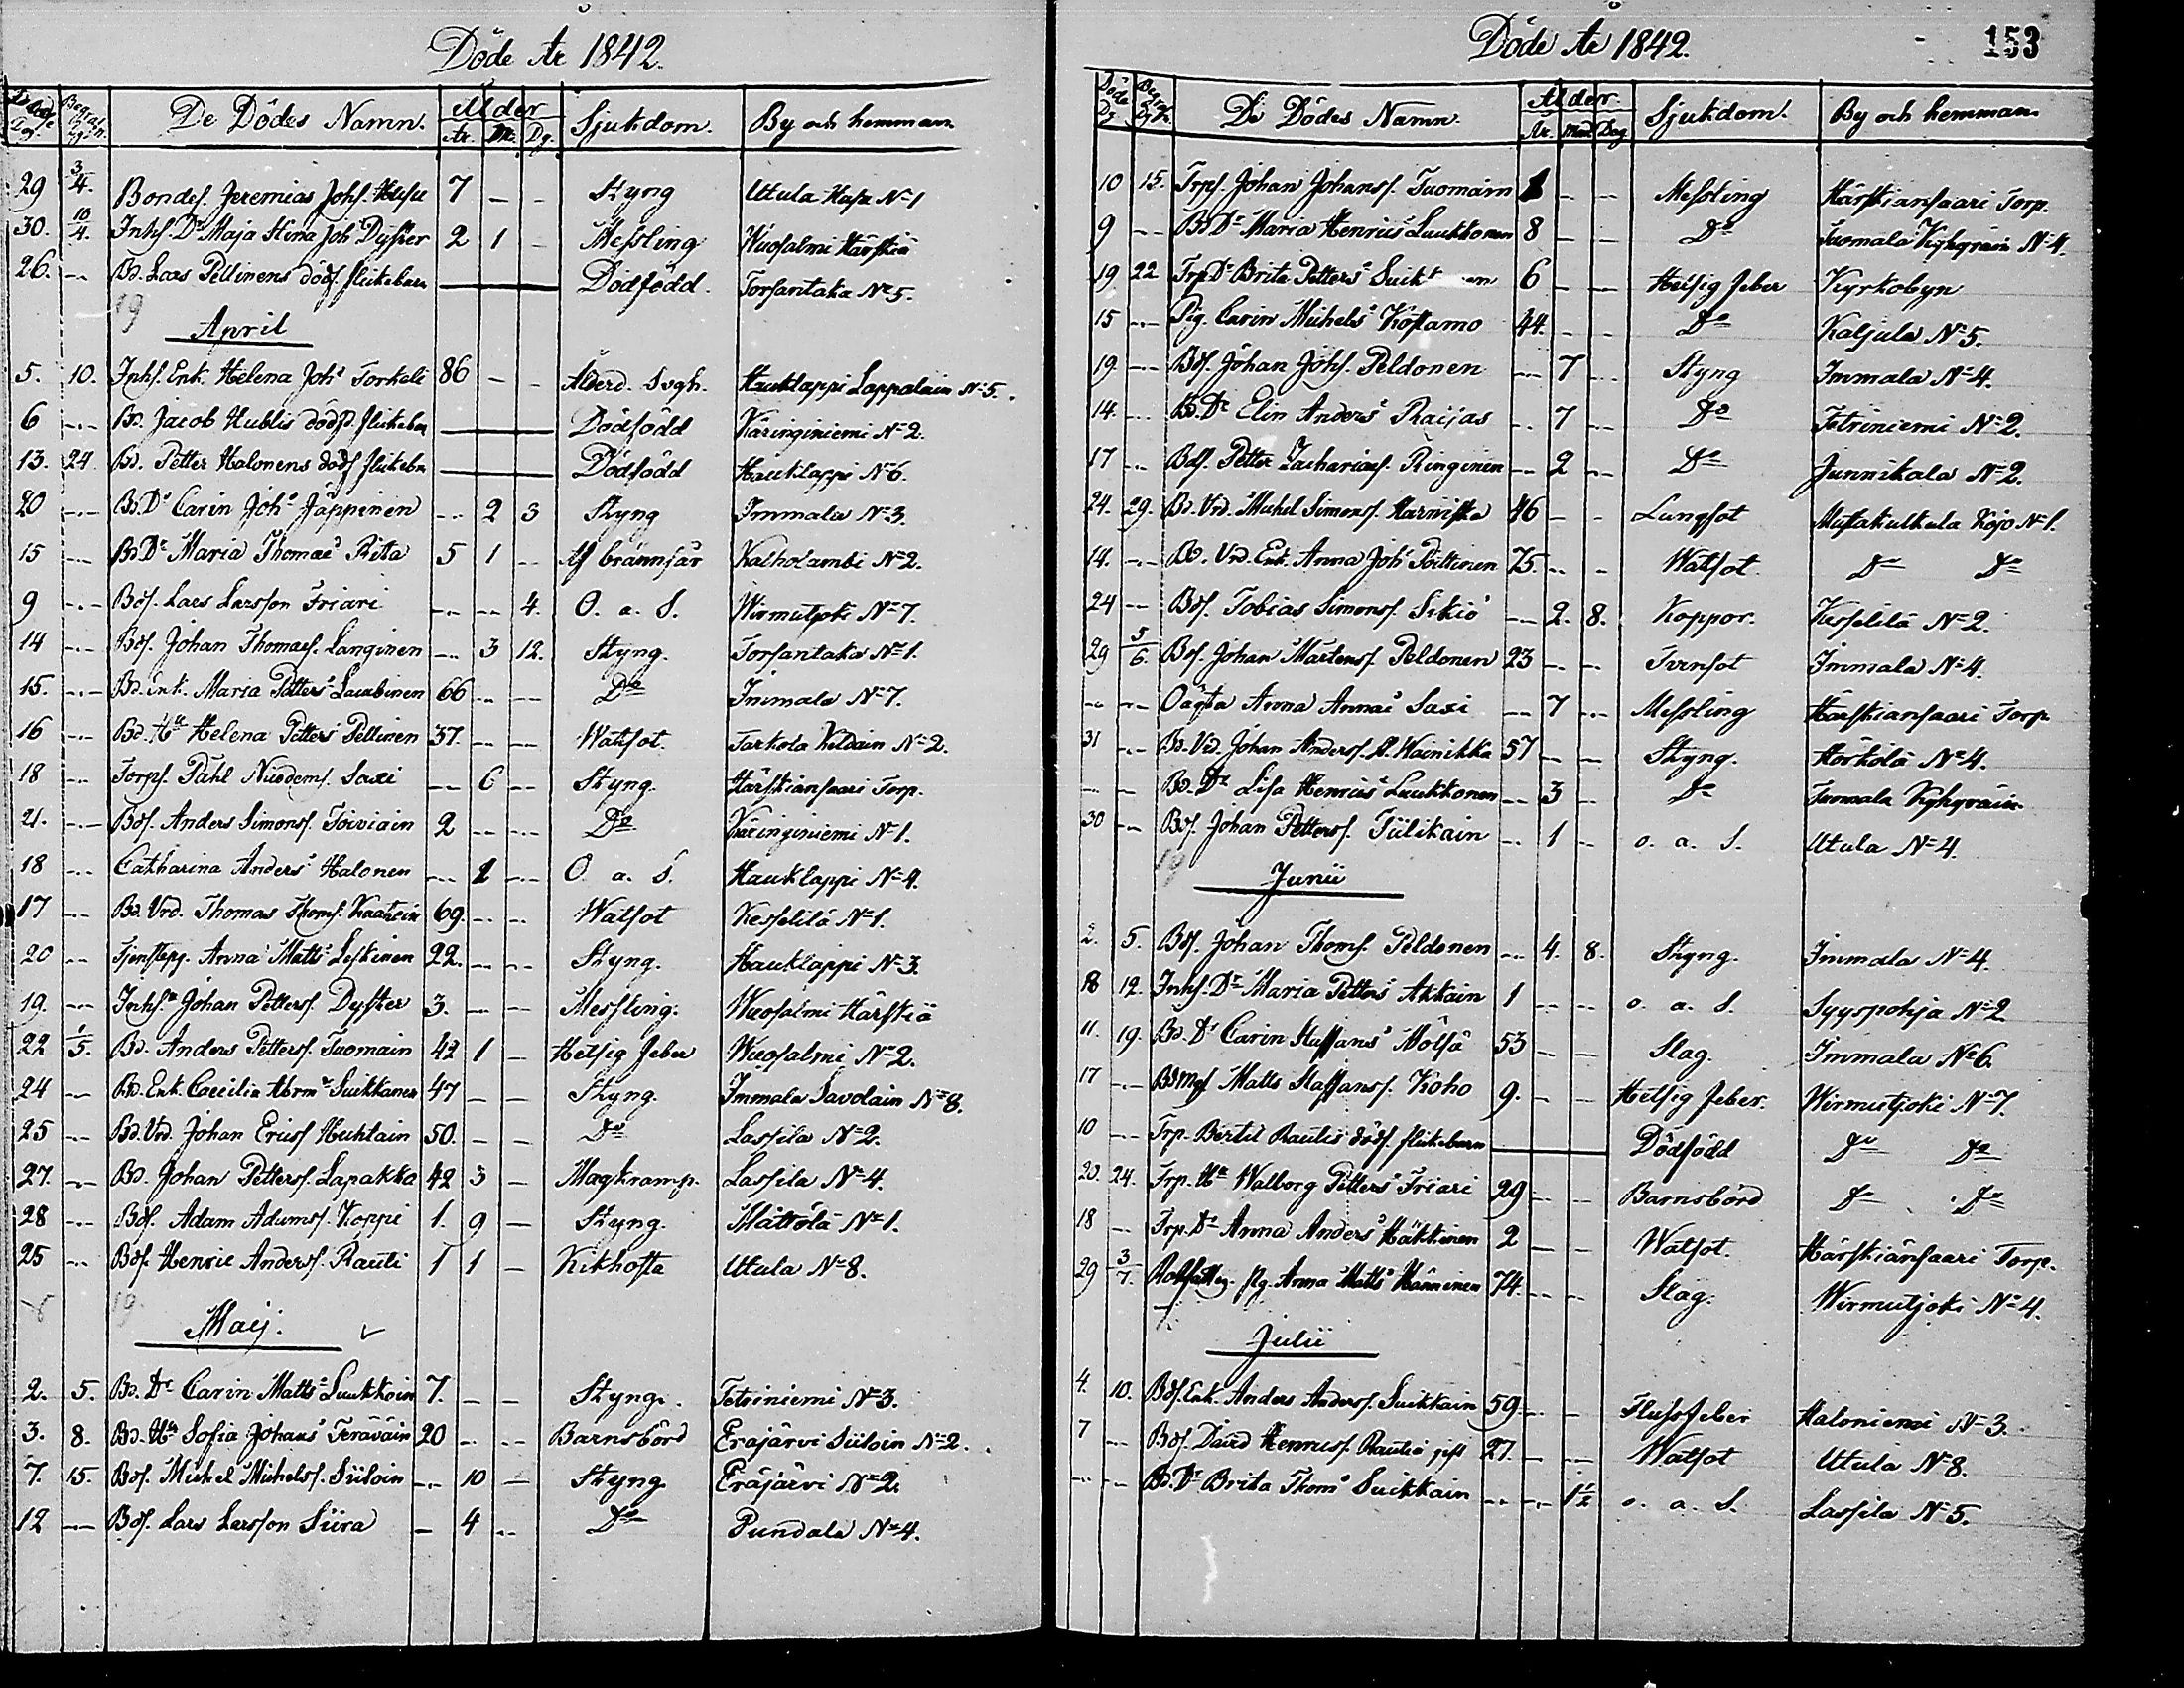 Döde År 1842.
De Dödes Namn. Ålder Sjukdom. By och hemman.
År. Md. Dg.
29 3/4. Bondes. Jeremias Johs. Husu 7 - - Styng Utula Husu No 1
30. 10/4. Inhs. Dr Maja Stina Joh Dyster 2 1 - Messling Wuosalmi Härskiä
26. -- Bd. Lars Pellinens dödf. flickebarn Dödfödd. Torsantaka No 5.
19
April
5. 10. Inhs. Enk. Helena Johs Torkeli 86 - - Ålderd. svgh. Hauklappi Lappalain No 5.
6 -- Bd. Jacob Kublis dödfd. flickebn Dödfödd Käringiniemi No 2.
13. 24 Bd. Petter Halonens dödf flickebn Dödfödd Hauklappi No 6.
20 -- Bd. Dr Carin Johs Jäppinen -- 2 3 Styng Immala No 3.
15 -- Bd Dr Maria Thomæ Rita 5 1 -- Af brännsår Kalholambi No 2.
9 -- Bds. Lars Larsson Friari -- -- 4. O. a. S. Wirmutjoki No 7.
14 -- Bds. Johan Thomæs. Langinen -- 3 12. Styng. Torsantaka No 1.
15. -- Bd. Enk. Maria Petters Laubinen 66 -- -- Do Immala No 7.
16 -- Bd. Hu Helena Petters Pellinen 37. -- -- Wattsot. Tarkola Kildain No 2.
18 -- Torps. Påhl Nicodems. Saxi -- 6 -- Styng. Härskiansaari Torp.
21. -- Bds. Anders Simons. Toiviain 2 -- -- Do Käringiniemi No 1.
18 -- Catharina Anders Halonen -- 1 -- O. a. S. Hauklappi No 4.
17 -- Bd. Vrd. Thomas Thoms. Kaatrin 69. -- -- Wattsot Kesselilä No 1.
20 -- Tjenstepg. Anna Matts Leskinen 22. -- -- Styng. Hauklappi No 3.
19. -- Inhs. Johan Petters. Dyster 3. -- -- Messling. Wuosalmi Härskiä
22 1/5. Bd. Anders Petters. Tuomain 42 1 - Hetsig feber Wuosalmi No 2.
24 -- Bd. Enk. Caecilia Abrms Suikkanen 47 - - Styng. Immala Savolain No 8.
25 -- Bd. Vrd. Johan Erics Huhtain 50. - - Do Lassila No 2.
27. -- Bd. Johan Petters. Lapakka 42 3 - Magkramp. Lassila No 4.
28 -- Bds. Adam Adams. Koppi 1. 9 - Styng. Mättölä No 1.
25 -- Bds. Henric Anders. Rauti 1 1 - Kikhosta Utula No 8.
19.
Maij.
2. 5. Bd. Dr Carin Matts Luukkoin 7. - - Styng. Tetriniemi No 3.
3. 8. Bd. Hu Sofia Johans Teräväin 20 -- -- Barnsbörd Eräjärvi Siiloin No 2.
7. 15. Bds. Michel Michels. Siiloin -- 10 - Styng Eräjärvi No 2.
12 -- Bds. Lars Larsson Siira - 4 -- Do Pundala No 4.
Döde År 1842. 153
De Dödes Namn. Ålder. Sjukdom. By och hemman.
År. Mad. Dag
10 15. Trps. Johan Johans. Tuomain 1 - - Messling Härskiansaari Torp.
9 -- Bd Dr Maria Henrics Luukkonen 8 - - Do Tuomala Kyhyräin No 4.
19 22 Trp Dr Brita Petters 6 - - Hetsig feber Kyrkobyn
15 -- Pig. Carin Michels Kostamo 44. - - Do Kaljula No 5.
19. -- Bds. Johan Johs. Peldonen -- 7 -- Styng Immala No 4.
14. -- Bd. Dr Elin Anders Raijas -- 7 -- Do Tetriniemi No 2.
17 -- Bds. Petter Zacharias. Ringinen -- 2 -- Do Junnikala No 2.
24. 29. Bd. Vrd. Michel Simons. Harniska 46 - - Lungsot Mustakulkula Kojo No 1.
14. -- Bd. Vrd. Enk. Anna Joh Pöllinen 75. -- - Wattsot. Do Do
24 -- Bds. Tobias Simons. Sikiö -- 2. 8. Koppor. Kesselilä No 2.
29 5/6. Bds. Johan Mårtens. Peldonen 23 -- -- Tvinsot Immala No 4.
-- -- Oägta Anna Annæ Saxi -- 7 -- Messling Härskiansaari Torp
31 -- Bd. Vd. Johan Anders. A. Wainikka 57 -- -- Styng. Härkölä No 4.
-- -- Bd. Dr Lisa Henrics Luukkonen -- 3 -- Do Tuomala Kyhyräin
30 -- Bds. Johan Petters. Tiilikain -- 1 -- o. a. S. Utula No 4.
19
Junii
2. 5. Bds. Johan Thoms. Peldonen -- 4. 8. Styng. Immala No 4.
18 12. Inhs. Dr Maria Petters Akkain 1 -- -- o. a. S. Syyspohja No 2
11. 19. Bd. Dr Carin Staffans Mölsä 53 - - Slag. Immala No 6.
17 -- Matts Staffans. Koho 9. - - Hetsig feber. Wirmutjoki No 7.
10 -- Trp. Bertil Rautis dödf. flickebarn Dödfödd Do Do
20. 24. Trp. Hu Walborg Petters Friari 29 -- -- Barnsbörd Do Do
18 -- Trp. Dr Anna Anders Häkkinen 2 -- -- Wattsot. Härskiänsaari Torp.
29 3/7. Rotfattig. pg. Anna Matts Hänninen 74. -- -- Slag. Wirmutjoki No 4.
Julii
4. 10. Bds. Enk. Anders Anders. Suikkain 59 -- -- Flussfeber Haloniemi No 3.
7 -- Bds. David Henrics. Rautio gift 27. - -- Wattsot Utula No 8.
-- -- Bd. Dr Brita Thoms Suikkain -- -- 1 1/2 o. a. S. Lassila No 5.